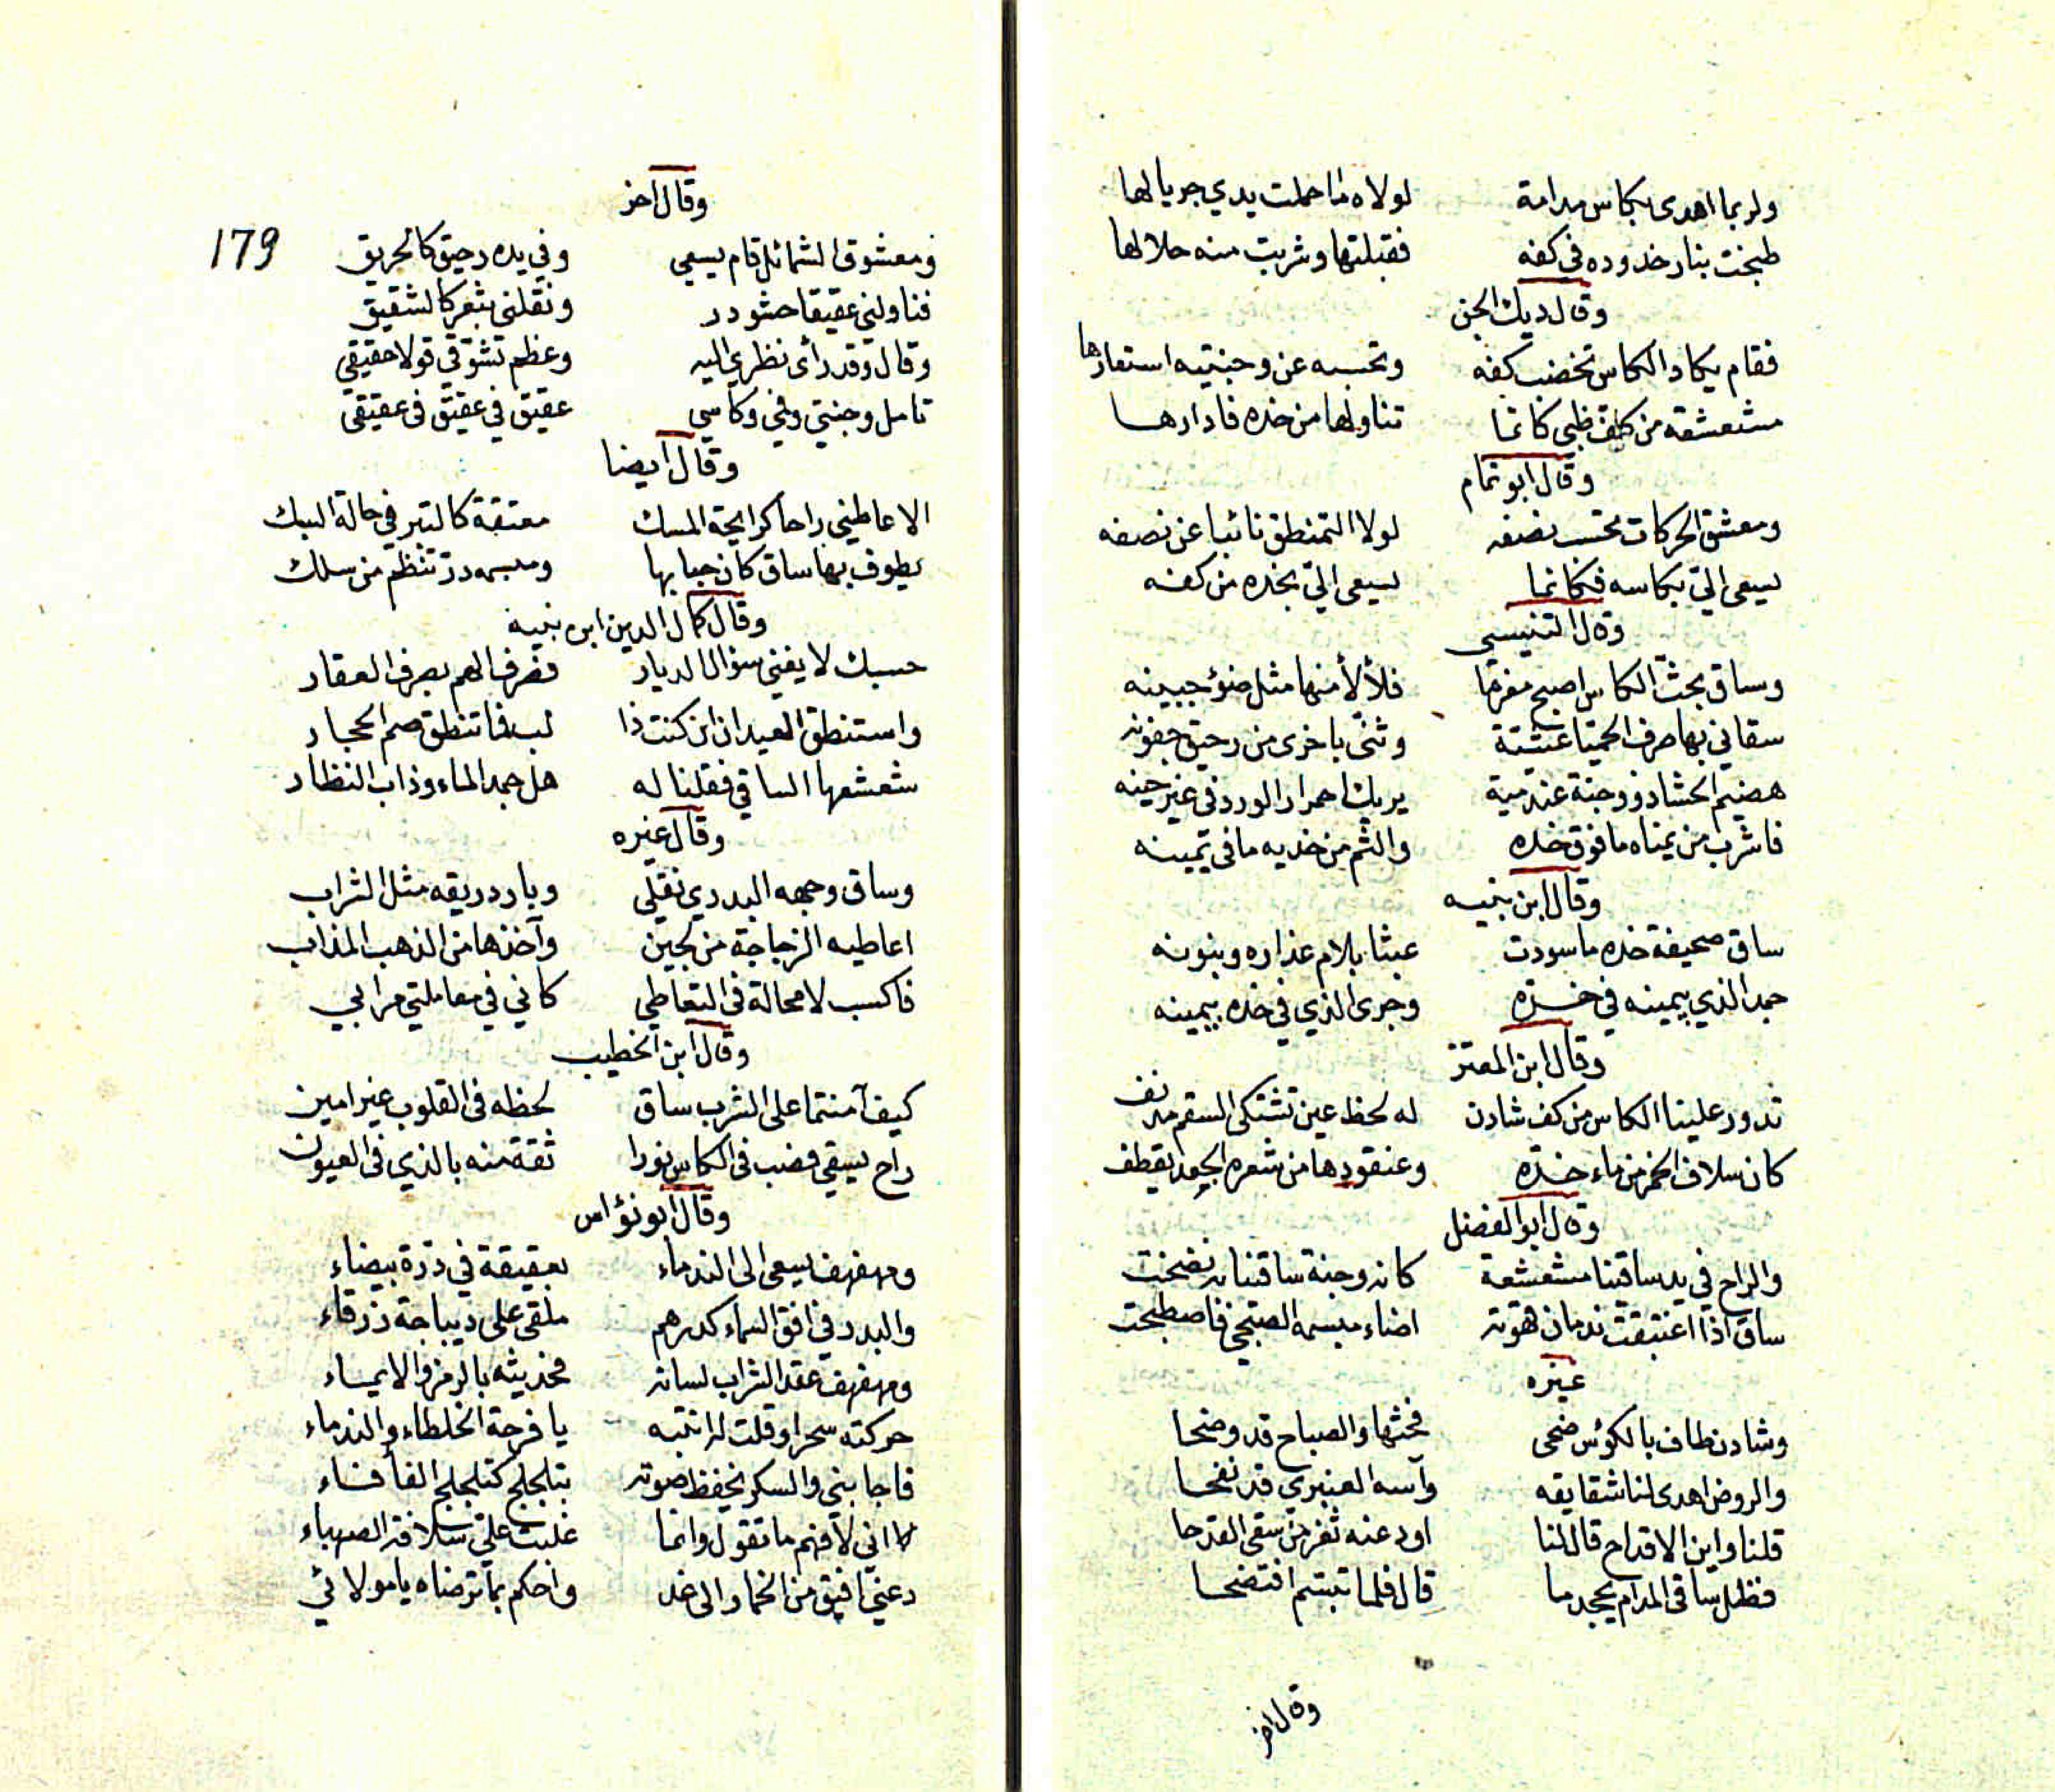 ولربما اهدى بكاس مدامة لولاه ما حملت يدي جريالها
طبخت بنار خدوده في كفه فقبلتها وشربت منه حلالها
وقال ديك الجن
فقام يكاد الكاس تخضب كفه وتحسبه عن وجنتيه استعارها
مشعشعة من كف ظبي كانما تناولها من خده فادارها
وقال ابو تمام
ومعشق الحركات تحسب نصفه لولا التمنطق نائبا عن نصفه
يسعى اليّ بكاسه فكانما يسعى اليّ بخده من كفه
وقال التنيسي
وساق بحثّ الكاس اصبح مغرما فلألأ منها مثل ضوء جبينه
سقاني بها صرف الحميا عشية وثنى باخرى من رحيق جفونه
هضيم الحشا ذو وجنة عندمية يريك احمرار الورد في غير حينه
فاشرب من يمناه ما فوق خده والثم من خديه ما في يمينه
وقال ابن نبيه
ساق صحيفة خده ما سودت عبثا بلام عذاره وبنونه
جمد الذي بيمينه في خدّه وجرى الذي في خده بيمينه
وقال ابن المعتز
تدور علينا الكاس من كف شادن له لحظ عين تشتكي السقم مدنف
كان سلاف الخمر من ماء خدّه وعنقودها من شعره الجعد يقطف
وقال ابو الفضل
والراح في يد ساقينا مشعشعة كانه وجنة ساقينا به نضحت
ساق اذا اغتبقت ندمان قهوته اضاء مبسمه الصبحي فاصطبحت
غيره
وشادن طاف بالكوس ضحى فحثها والصباح قد وضحا
والروض اهدى لنا شقايقه وآسه العنبري قد نفحا
قلنا واين الاقداح قال لنا اودعته ثغر من سقى القدحا
فظل ساقي المدام يجحد ما قال فلما تبسم افتضحا
وقال اخر
وقال اخر
179
ومعشوق الشمائل قام يسعى وفي يده رحيق كالحريق
فناولني عقيقا حشو در ونقلني بثغر كالشقيق
وقال وقد رأى نظري اليه وعظم تشوقي قولا حقيقي
تامل وجنتي وفي وكاسي عقيق في عقيق في عقيقي
وقال ايضا
الا عاطني راحا كرايحة المسك معتقة كالتبر في حالة السبك
يطوف بها ساق كان حبابها ومبسمه در تنظم من سلك
وقال كمال الدين ابن نبيه
حسبك لا يغني سؤال الديار فصرف الهم بصرف العقار
واستنطق العيدان ان كنت ذا لب فما تنطق صم الحجار
شعشعها الساقي فقلنا له هل جمد الماء وذاب النظار
وقال غيره
وساق وجهه البدري نقلي وبارد ريقه مثل الشراب
اعاطيه الزجاجة من لجين وآخذها من الذهب المذاب
فاكسب لا محالة في التعاطي كاني في معاملتي مرابي
وقال ابن الخطيب
كيف آمنتما على الشرب ساق لحظه في القلوب غير امين
راح يسقي فصب في الكاس نورا ثقة منه بالذي في العيون
وقال ابو نؤاس
ومهفهف يسعى الى الندماء بعقيقة في درّة بيضاء
والبدر في افق السماء كدرهم ملقى على ديباجة زرقاء
ومهفهف عقد الشراب لسانه فحديثه بالرمز والايماء
حركته سحرا وقلت له انتبه يا فرحة الخلطاء والندماء
فاجابني والسكر يخفظ صوته بتلجلج كتلجلج الفأفاء
اني لافهم ما تقول وانما غلبت عليّ سلافة الصهباء
دعني افيق من الخمار الى غد واحكم بما ترضاه يا مولائي